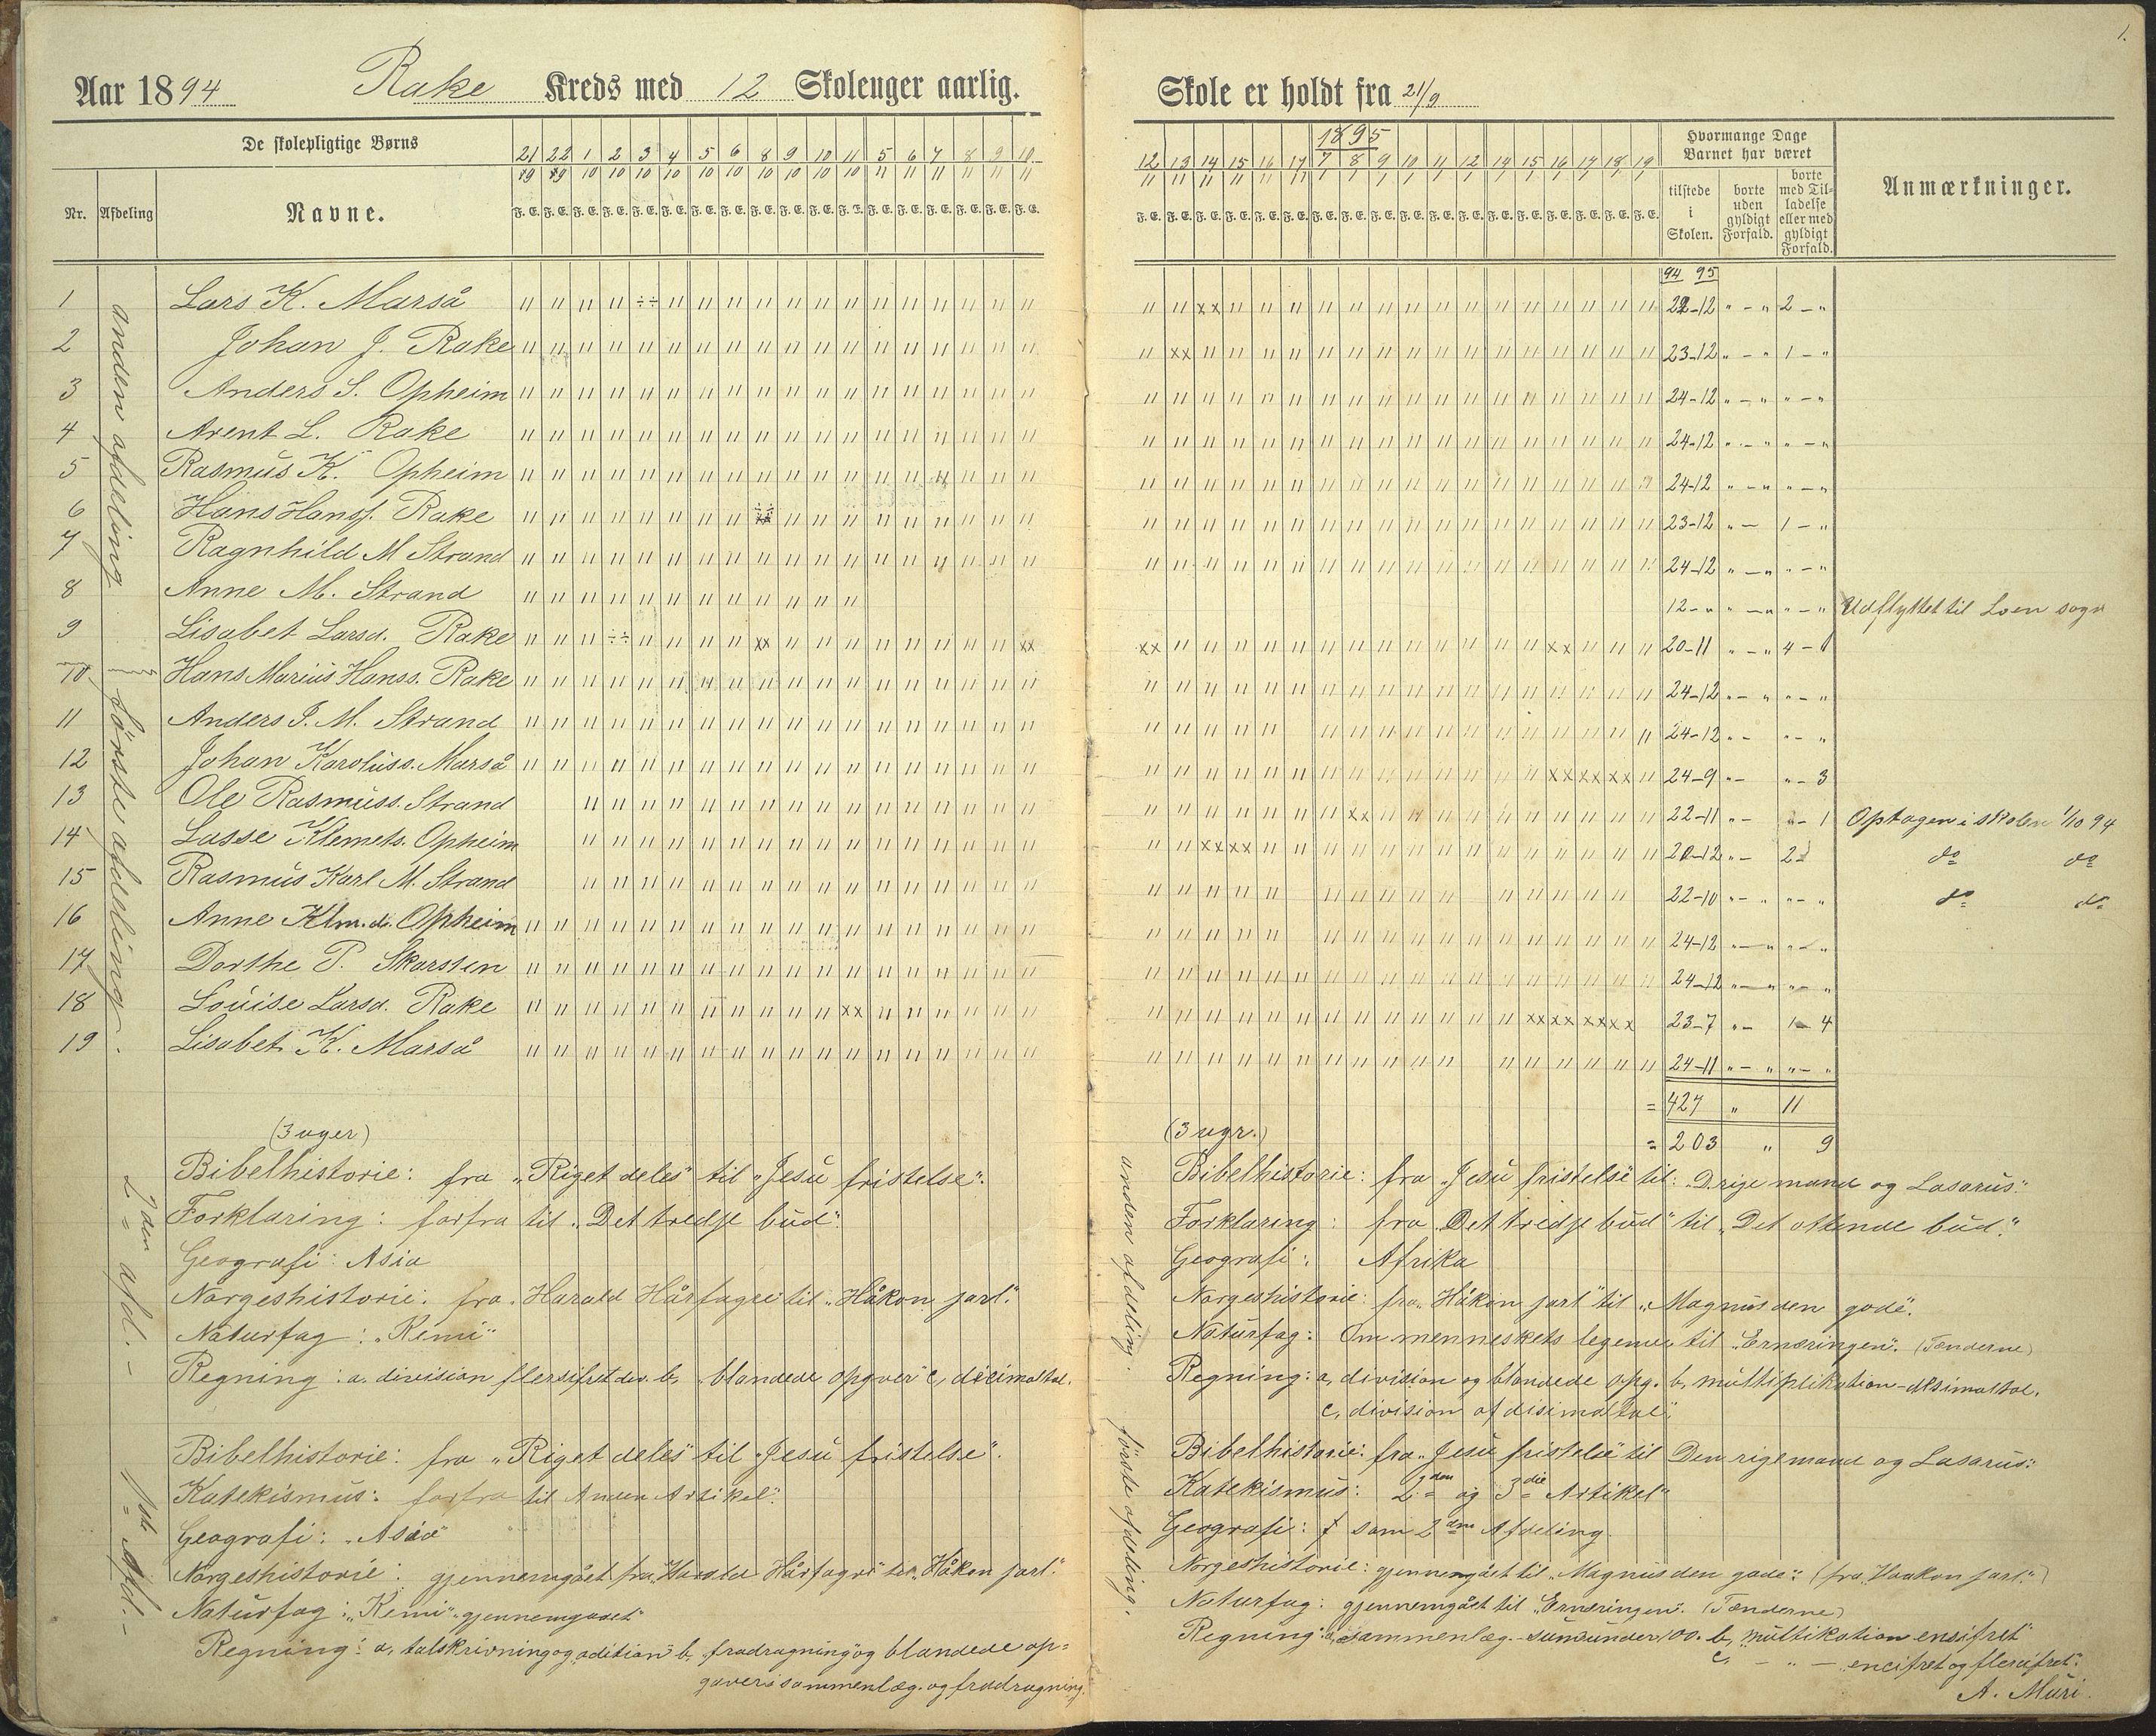 Aar 1894 Rake Kreds med 12 Skoleuger aarlig.
De skolepligtige Børns
21 22 1 2 3 4 5 6 8 9 10 11 5 6 7 8 9 10
9 9 10 10 10 10 10 10 10 10 10 10 11 11 11 11 11 11
Nr. Afdeling Navne.
F. E. F. E. F. E. F. E. F. E. F. E. F. E. F. E. F. E. F. E. F. E. F. E. F. E. F. E. F. E. F. E. F. E. F. E.
anden afdeling
1 Lars K. Marså
2 Johan J. Rake
3 Anders S. Opheim
4 Arent L. Rake
5 Rasmus K. Opheim
6 Hans Hanss. Rake
7 Ragnhild M Strand
8 Anne M. Strand
9 Lisabet Larsd. Rake
Første afdeling
10 Hans Marius Hanss. Rake
11 Anders J. M. Strand
12 Johan Karoluss. Marså
13 Ole Rasmuss. Strand
14 Lasse Klemets. Opheim
15 Rasmus Karl M. Strand
16 Anne Klm.d. Opheim
17 Dorthe P. Skarsten
18 Louise Larsd. Rake
19 Lisabet K. Marså
(3 uger)
2den afd.
Bibelhistorie: fra "Riget deles" til "Jesu fristelse".
Forklaring: forfra til "Det tredje bud".
Geografi: Asia
Norgeshistorie: fra "Harald Hårfagre" til "Håkon jarl".
Naturfag: "Kemi"
Regning: a, division flersifret div. b, blandede opgver" c, dicimaltal.
1ste Afd.
Bibelhistorie: fra "Riget deles" til "Jesu fristelse".
Katekismus: forfra til Anden Artikel".
Geografi: "Asia"
Norgeshistorie: gjennemgået fra "Harald Hårfagre" til "Håkon jarl."
Naturfag: "Kemi" gjennemgaaet"
Regning: a, talskrivning og adition" b, fradragning og blandede op=
gaver i sammenlæg. og fradragning.
1.
Skole er holdt fra 21/9
1895
12 13 14 15 16 17 7 8 9 10 11 12 14 15 16 17 18 19
11 11 11 11 11 11 1 1 1 1 1 1 1 1 1 1 1 1
F. E. F. E. F. E. F. E. F. E. F. E. F. E. F. E. F. E. F. E. F. E. F. E. F. E. F. E. F. E. F. E. F. E. F. E.
Hvormange Dage
Barnet har været
tilstede i Skolen.
borte uden gyldigt Forfald.
borte med Til-ladelse eller med gyldigt Forfald.
Anmærkninger.
94 95
22-12 " - " 2 - "
23-12 " - " 1 - "
24-12 " - " " - "
24-12 " - " " - "
24-12 " - " " - "
23-12 " - 1 - "
24-12 " - " " - "
12 - " " - " " - " Udflyttet til Loen sogn
20-11 " - " 4 - 1
24-12 " - " " - "
24-12 " - " - "
24-9 " - " - 3
22-11 " - - 1 Optagen i skolen 1/10 94
20-12 " - 2 do do
22-10 " - " " - " do do
24-12 " - " " - "
24-12 " - " " - "
23-7 " - 1 - 4
24-11 " - " " - "
= 427 " 11
= 203 " 9
(3 ugr.)
anden afdeling.
Bibelhistorie: fra "Jesu fristelse til: D. rige mand og Lasarus."
Forklaring: fra "Det tredje bud" til "Det ottende bud."
Geografi: Afrika
Norgeshistorie: fra "Håkon jarl" til "Magnus den gode".
Naturfag: Om menneskets legeme til "Ernæringen". (Tænderne)
Regning: a, division og blandede opg. b, multiplikation-desimaltal.
c, division af disimaltal".
første afdeling.
Bibelhistorie: fra "Jesu fristelse" til Den rige mand og Lasarus".
Katekismus: 2den og 3die Artikel"
Geografi: som 2den Afdeling.
Norgeshistorie: gjennemgået til "Magnus den gode". (fra "Haakon jarl.")
Naturfag: gjennemgået til "Ernæringen". (Tænderne)
Regning: a, sammenlæg. - sum under 100. b, multikation ensifret"
c, - " - encifret og flercifret".
A. Muri.